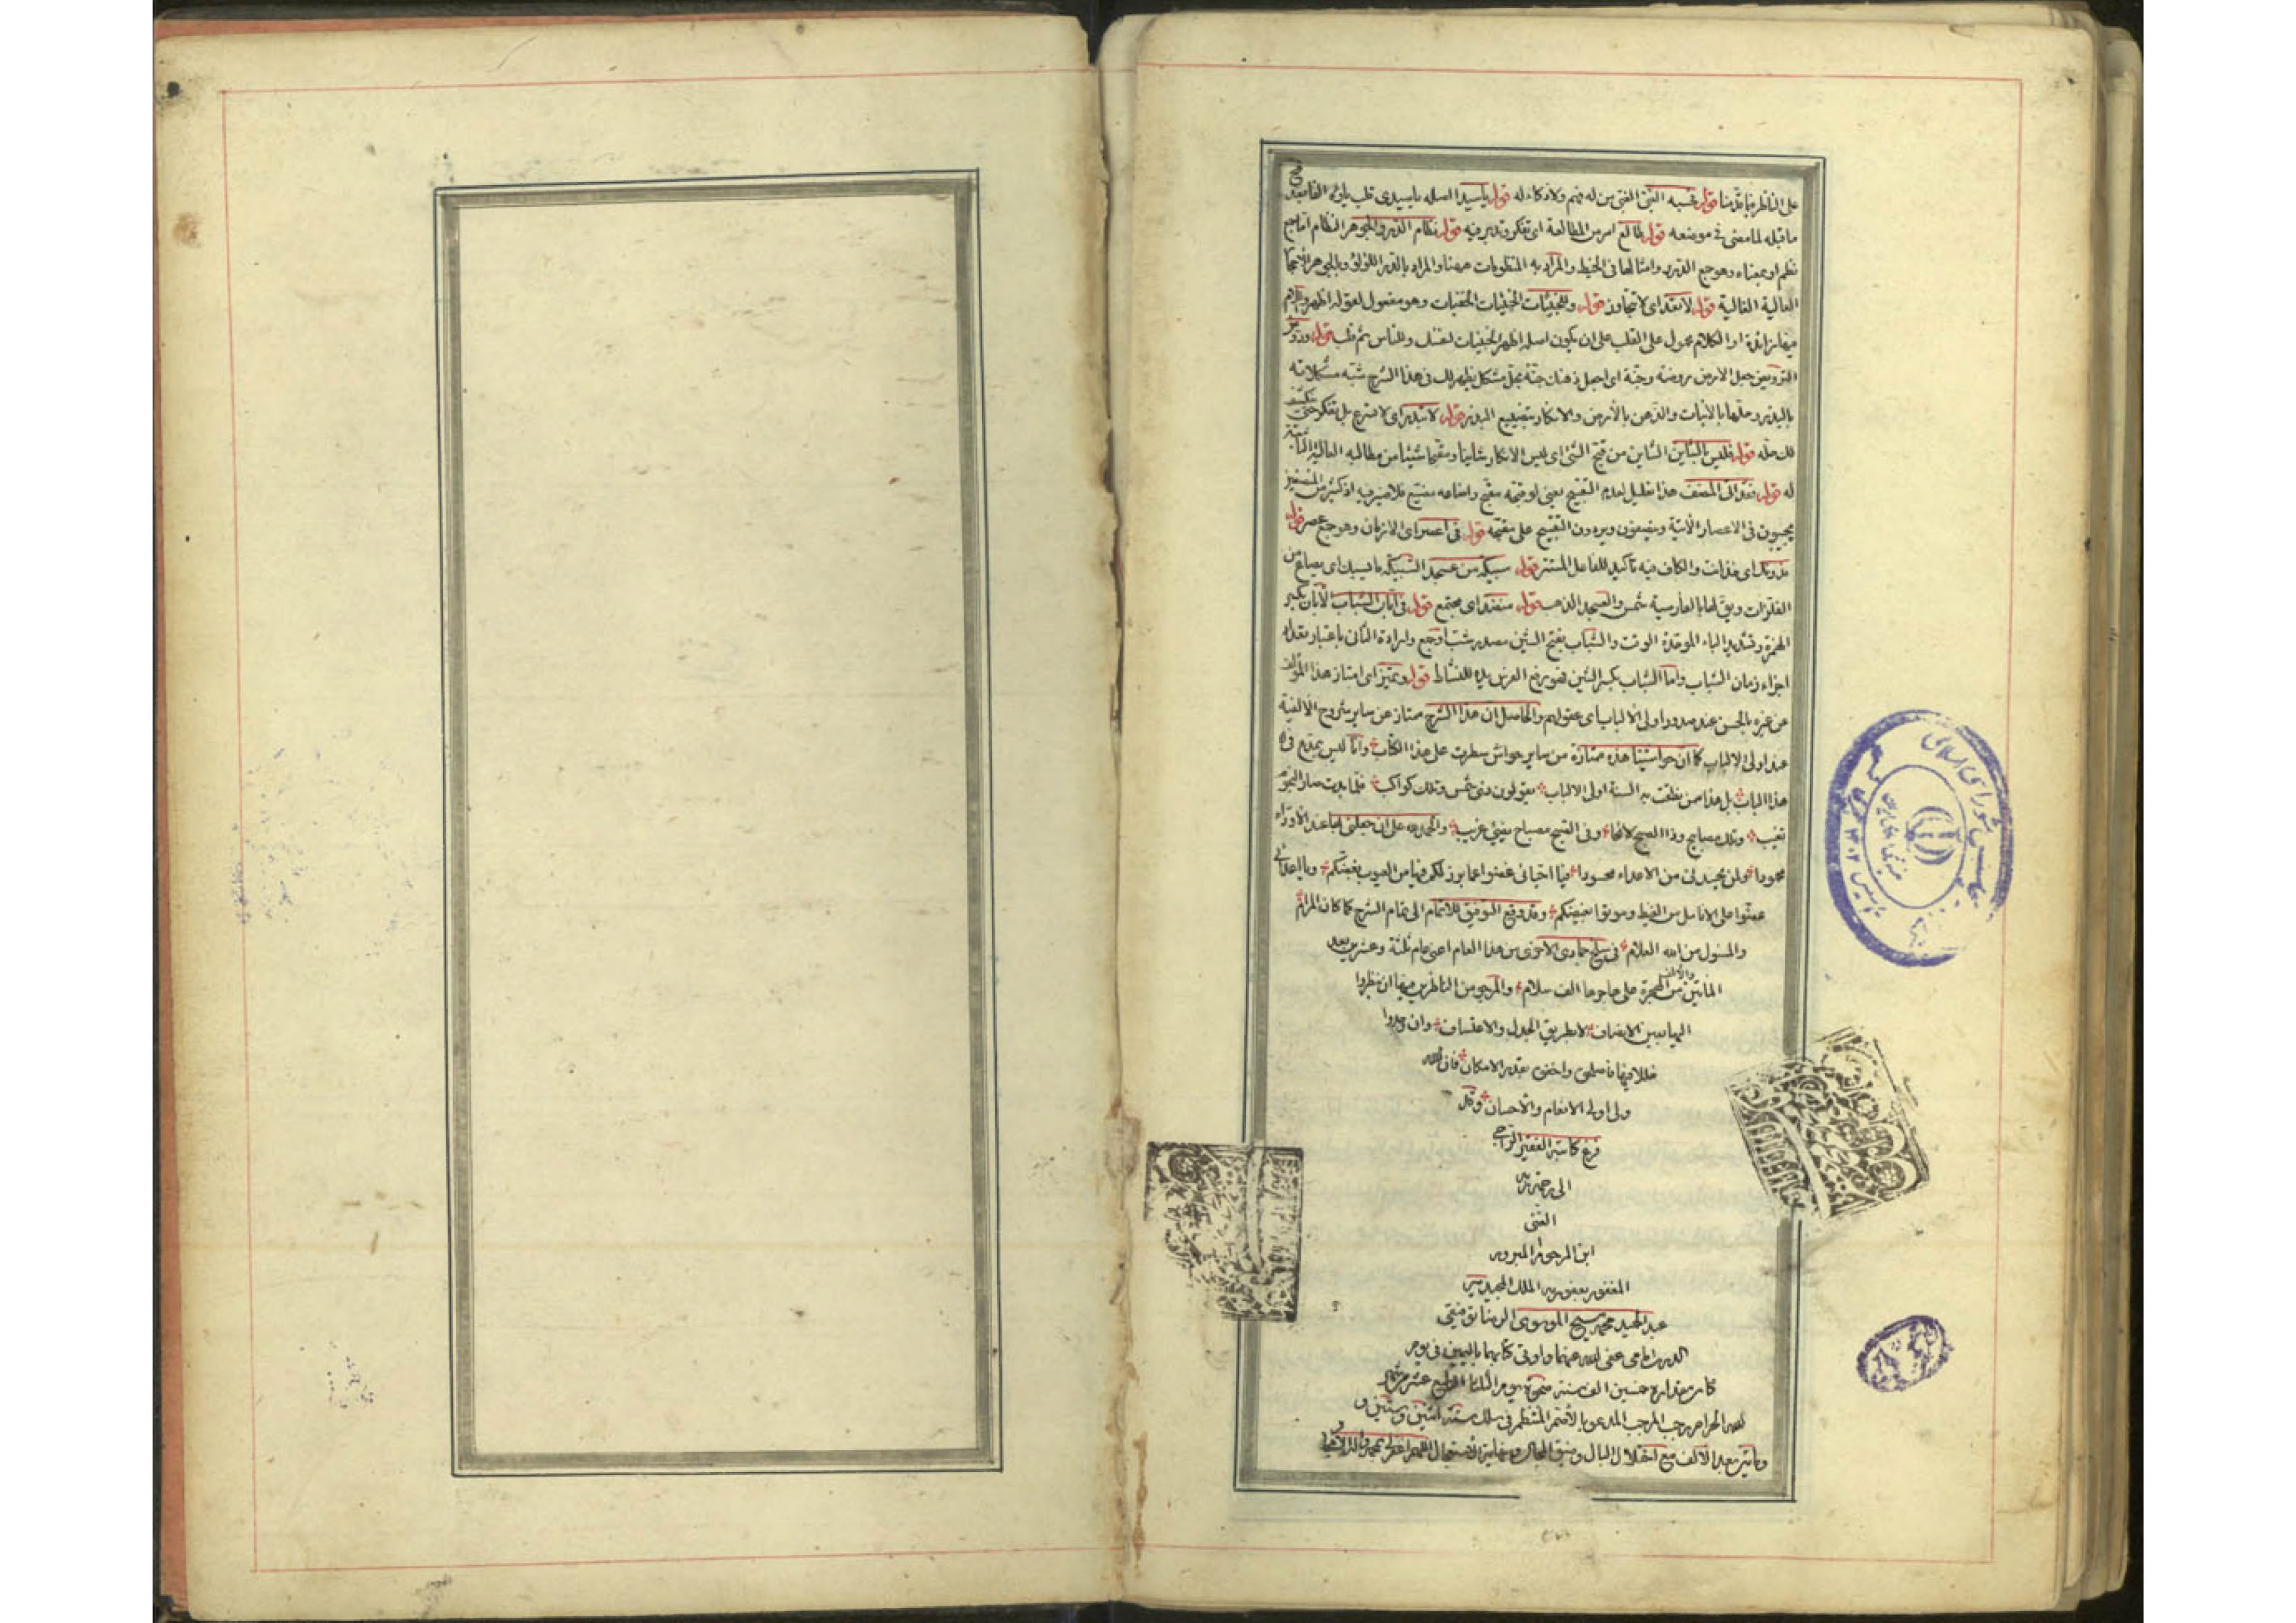 على الناظر فيما تلونا قوله تحسبه الغبى الغبى من له فهم ولا ذكاء له قوله يا سيدا اصله يا سيدى قلب ياؤه الفا بعد
ما قبله لما مضى فى موضعه قوله طالع امر من المطالعة اى تفكر وتدبر فيه قوله نظام الدر والجوهر النظام اما جمع
نظم او بمعناه وهو جمع الدرر وامثالها فى الخيط والمراد به المنظومات ههنا والمراد بالدر اللؤلؤ وبالجوهر
العالية الغالية قوله لا تعد اى لا تتجاوز قوله وللخبيئات الخبيئات الخفيات وهو مفعول لقوله اظهر
فيها زائدة او الكلام محمول على القلب على ان يكون اصله اظهر الخبيئات لنفسك وللناس ثم قلب قوله
الترويض جعل الارض روضة وجنة اى اجعل ذهنك جنة بحل مشكل يظهر لك فى هذا الشرح شبه مشكلاته
بالبذر وحلها بالانبات والذهن بالارض والانكار بتضييع البذر قوله لا تبذر اى لا تسرع بل تفكر حتى ينكشف
لك حله قوله فليس بالشاين الشاين من قبح الشئ اى ليس الانكار شاينا ومقبحا شيئا من مطالبه العالية
له قوله فقد اتى المصنف هذا تعليل لعدم التقبيح يعنى لو قبحه مقبح واضاعه مضيع فلا ضير فيه اذ كثير من المنصفين
يجيبون فى الاعصار الآتية وينصفون ويردون التقبيح على مقبحه قوله فى اعصر اى الازمان وهو جمع عصر قوله
فدونك اى فخذ انت والكاف فيه تاكيد للفاعل المستتر قوله سبيكة من عسجد السبيكة ما يسبك اى يصاغ من
الفلزات ويق لها بالفارسية شمس والعسجد الذهب قوله منضد اى مجتمع قوله فى ابان الشباب الابان بكسر
الهمزة وتشديد الباء الموحدة الوقت والشباب بفتح الشين مصدر شب او جمع وارادة الثانى باعتبار تعدد
اجزاء زمان الشباب واما الشباب بكسر الشين فهو رفع الفرس يديه للنشاط قوله وتميز اى امتاز هذا المؤلف
عن غيره بالحسن عند صدور اولى الالباب اى عقولهم والحاصل ان هذا الشرح ممتاز عن ساير شروح الالفية
عند اولى الالباب كما ان حواشينا هذه ممتازة من ساير حواش سطرت على هذا الكتاب وانا ليس بمدع فى
هذا الباب بل هذا ممن نطقت به السنة اولى الالباب يقولون ذى شمس وتلك كواكب فلما بدت صار النجوم
تغيب وتلك مصابيح وذا الصبح لائحا وفى الصبح مصباح يضئ غريب والحمد لله على ان جعلنى
محمودا ولن يجدنى من الاعداء محسودا فيا اخيانى غضوا عما برز لكم فيها من العيوب بغضكم ويا اعدائى
عضوا على الانامل من الغيظ وموتوا بغيضكم وقد وقع التوفيق للاتمام الى تمام الشرح كما كان المرام
والمسئول من الله العلام فى سلخ جمادى الاخرى من هذا العام اعنى عام ثلثة وعشرين بعد
المأتين والالف من الهجرة على هاجرها الف سلام والمرجو من الناظرين فيها ان ينظروا
اليها بعين الانصاف لا بطريق الجدل والاعتساف وان وجدوا
خللا فيها فاصلحى واخفى بقدر الامكان فان الله
ولى اولى الانعام والاحسان وقد
فرغ كاتبه الفقير الراجى
الى رحمة ربه
الغنى
ابن المرحوم المبرور
المغفور بعفو ربه الملك المجيد
عبد الحميد محمد مسيح الموسوى
عفى الله عنهما واوتى كتابهما باليمين فى يوم
كان مقداره خمسين الف سنة ضحوة يوم الثلثا الرابع عشر من شهر
الله الحرام رجب المرجب المدعو بالاصم المنتظم فى سلك سنة اثنين وستين و
ماتين بعد الالف مع اختلال البال وضيق المجال ونهاية الاستعجال اللهم اغفر بمحمد وآله